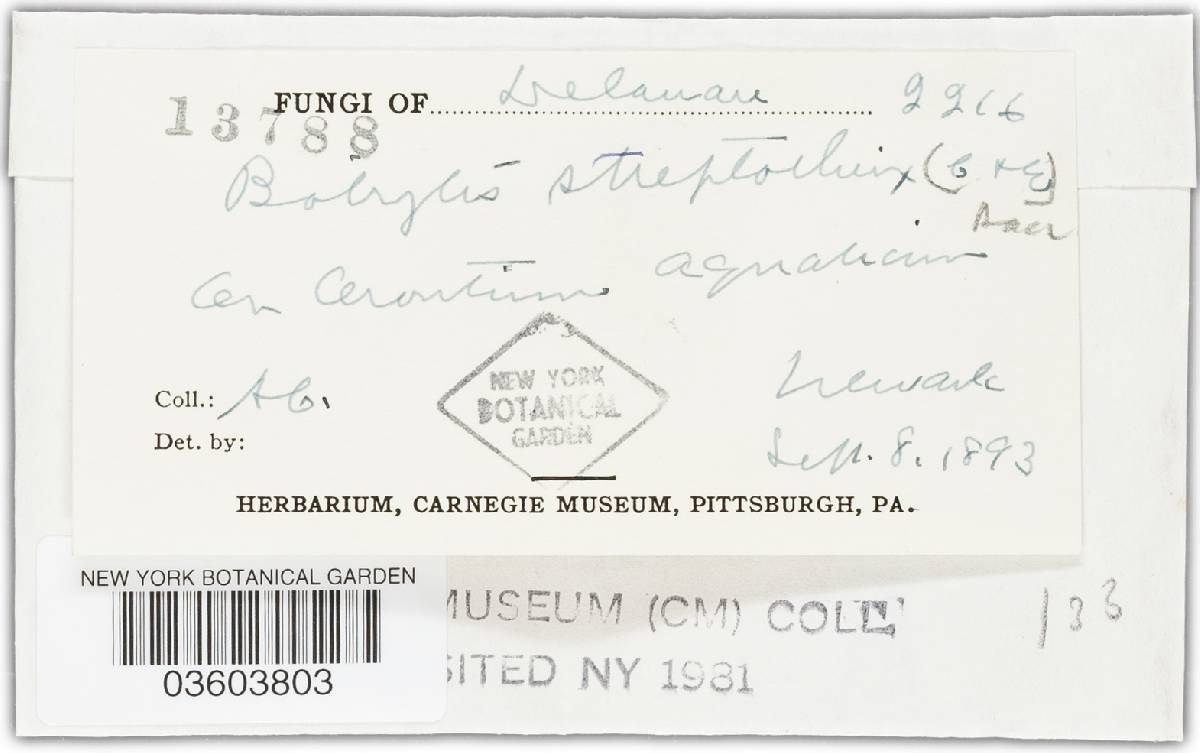 FUNGI OF Delaware 2216
13788
Botrytis streptothrix (C + E)
Sacc
On Orontium aquaticum
Coll.: AC.
Newark
Det. by:
Sept. 8. 1893
NEW YORK
BOTANICAL
GARDEN
HERBARIUM, CARNEGIE MUSEUM, PITTSBURGH, PA.
NEW YORK BOTANICAL GARDEN
03603803
MUSEUM (CM) COLL.
SITED NY 1981
133